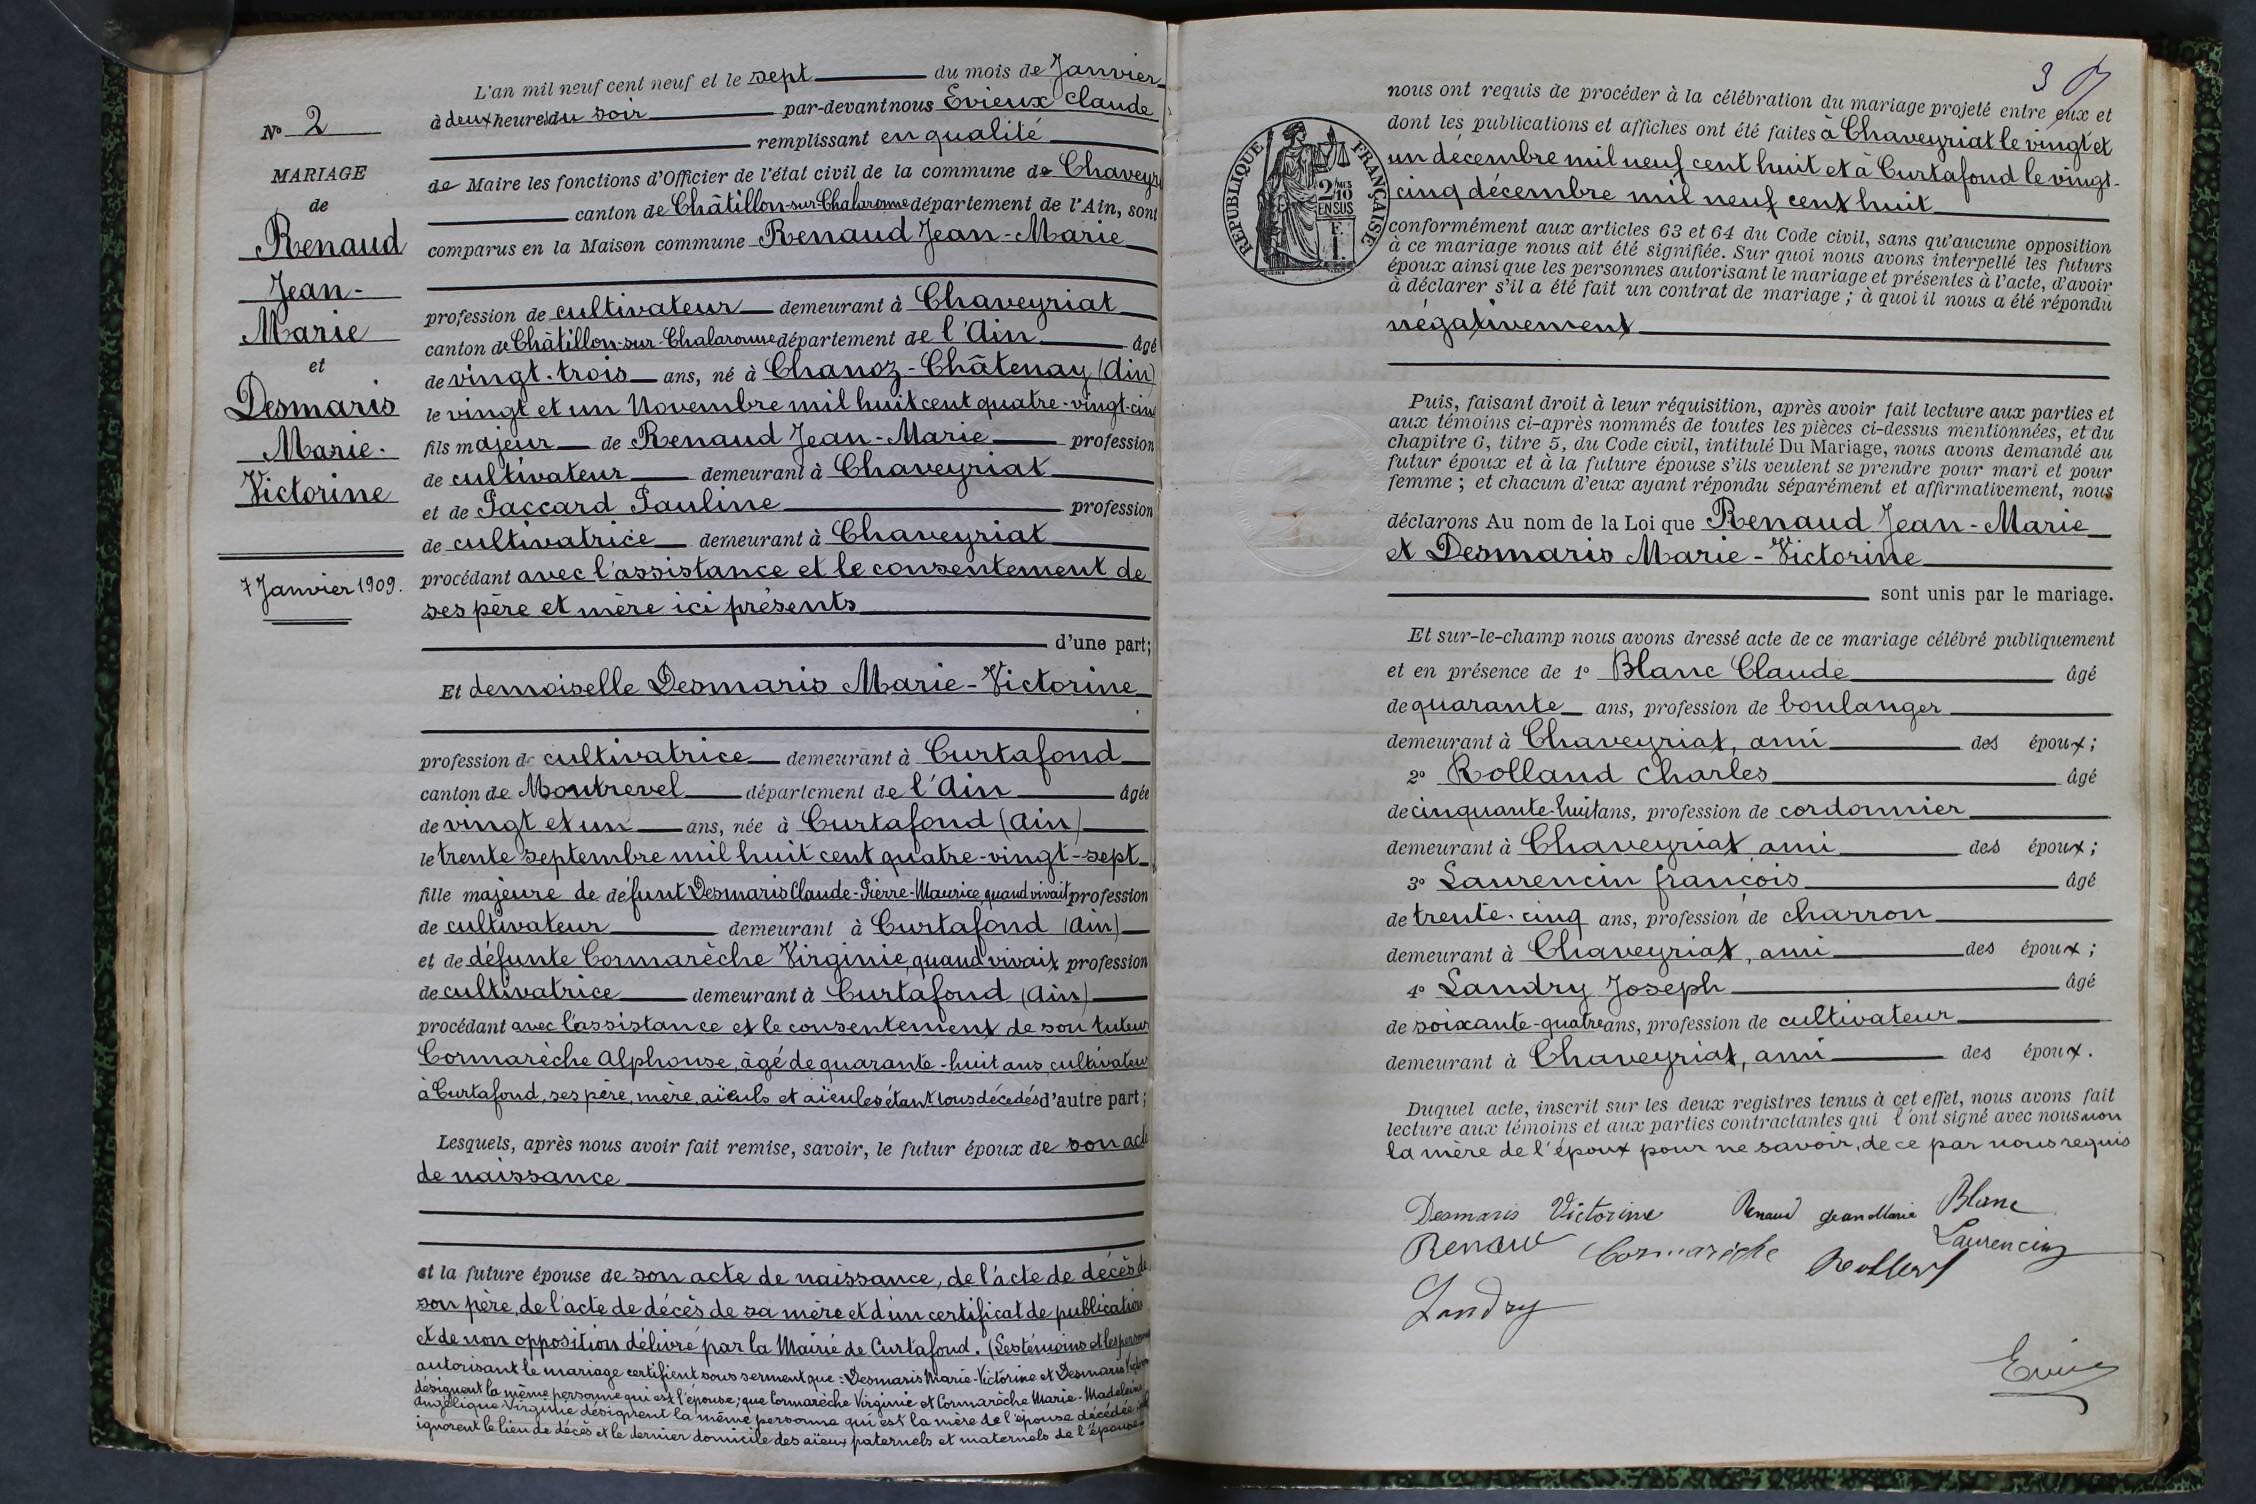 N° 2
MARIAGE
de
Renaud
Jean-
Marie
et
Desmaris
Marie-
Victorine
7 Janvier 1909.
L'an mil neuf cent neuf et le sept du mois de Janvier
à deux heures du soir par-devant nous Evieux Claude
remplissant en qualité
de Maire les fonctions d'Officier de l'état civil de la commune de Chaveyr
canton de Châtillon-sur-Chalaronne département de l'Ain, sont
comparus en la Maison commune Renaud Jean-Marie
profession de cultivateur demeurant à Chaveyriat
canton de Châtillon-sur-Chalaronne département de l'Ain âgé
de vingt-trois ans, né à Chanoz-Châtenay (Ain)
le vingt et un Novembre mil huit cent quatre-vingt-cinq
fils majeur de Renaud Jean-Marie profession
de cultivateur demeurant à Chaveyriat
et de Paccard Pauline profession
de cultivatrice demeurant à Chaveyriat
procédant avec l'assistance et le consentement de
ses père et mère ici présents
d'une part;
Et demoiselle Desmaris Marie-Victorine
profession de cultivatrice demeurant à Curtafond
canton de Montrevel département de l'Ain âgée
de vingt et un ans, née à Curtafond (Ain)
le trente septembre mil huit cent quatre-vingt-sept
fille majeure de défunt Desmaris Claude-Pierre-Maurice, quand vivait profession
de cultivateur demeurant à Curtafond (Ain)
et de défunte Cormarèche Virginie, quand vivait profession
de cultivatrice demeurant à Curtafond (Ain)
procédant avec l'assistance et le consentement de son tuteur
Cormarèche Alphonse, âgé de quarante-huit ans, cultivateur
à Curtafond, ses père, mère, aïeuls et aïeules étant tous décédés d'autre part;
Lesquels, après nous avoir fait remise, savoir, le futur époux de son acte
de naissance
et la future épouse de son acte de naissance, de l'acte de décès de
son père, de l'acte de décès de sa mère et d'un certificat de publication
et de non opposition délivré par la Mairie de Curtafond. (Les témoins et les personnes
autorisant le mariage certifient sous serment que : Desmaris Marie-Victorine et Desmaris Victorine
désignent la même personne qui est l'épouse; que Cormarèche Virginie et Cormarèche Marie-Madeleine
Angélique Virginie désignent la même personne qui est la mère de l'épouse décédée
ignorent le lieu de décès et le dernier domicile des aïeux paternels et maternels de l'épouse
3
RÉPUBLIQUE FRANÇAISE
2/10
EN SUS
nous ont requis de procéder à la célébration du mariage projeté entre eux et
dont les publications et affiches ont été faites à Chaveyriat le vingt et
un décembre mil neuf cent huit et à Curtafond le vingt-
cinq décembre mil neuf cent huit
conformément aux articles 63 et 64 du Code civil, sans qu'aucune opposition
à ce mariage nous ait été signifiée. Sur quoi nous avons interpellé les futurs
époux ainsi que les personnes autorisant le mariage et présentes à l'acte, d'avoir
à déclarer s'il a été fait un contrat de mariage; à quoi il nous a été répondu
négativement
Puis, faisant droit à leur réquisition, après avoir fait lecture aux parties et
aux témoins ci-après nommés de toutes les pièces ci-dessus mentionnées, et du
chapitre 6, titre 5, du Code civil, intitulé Du Mariage, nous avons demandé au
futur époux et à la future épouse s'ils veulent se prendre pour mari et pour
femme; et chacun d'eux ayant répondu séparément et affirmativement, nous
déclarons Au nom de la Loi que Renaud Jean-Marie
et Desmaris Marie-Victorine
sont unis par le mariage.
Et sur-le-champ nous avons dressé acte de ce mariage célébré publiquement
et en présence de 1° Blanc Claude âgé
de quarante ans, profession de boulanger
demeurant à Chaveyriat, ami des époux;
2° Rolland Charles âgé
de cinquante-huit ans, profession de cordonnier
demeurant à Chaveyriat, ami des époux;
3° Laurencin françois âgé
de trente-cinq ans, profession de charron
demeurant à Chaveyriat, ami des époux;
4° Landry Joseph âgé
de soixante-quatre ans, profession de cultivateur
demeurant à Chaveyriat, ami des époux.
Duquel acte, inscrit sur les deux registres tenus à cet effet, nous avons fait
lecture aux témoins et aux parties contractantes qui l'ont signé avec nous non
la mère de l'époux pour ne savoir, de ce par nous requis
Desmaris Victorine Renaud Jean Marie Blanc
Renaud Cormarèche Laurencin
Landry
Evieux